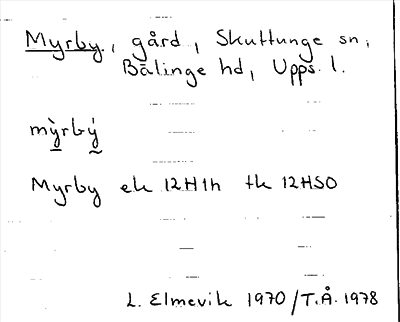 Myrby, gård, Skuttunge sn,
Bälinge hd, Upps. l.
mỳ̱rbý̰
Myrby ek 12H1h tk 12H50
L. Elmevik 1970/T.Å. 1978